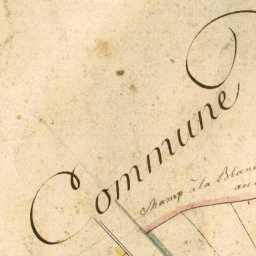 Commune
Champ à la Blan
au